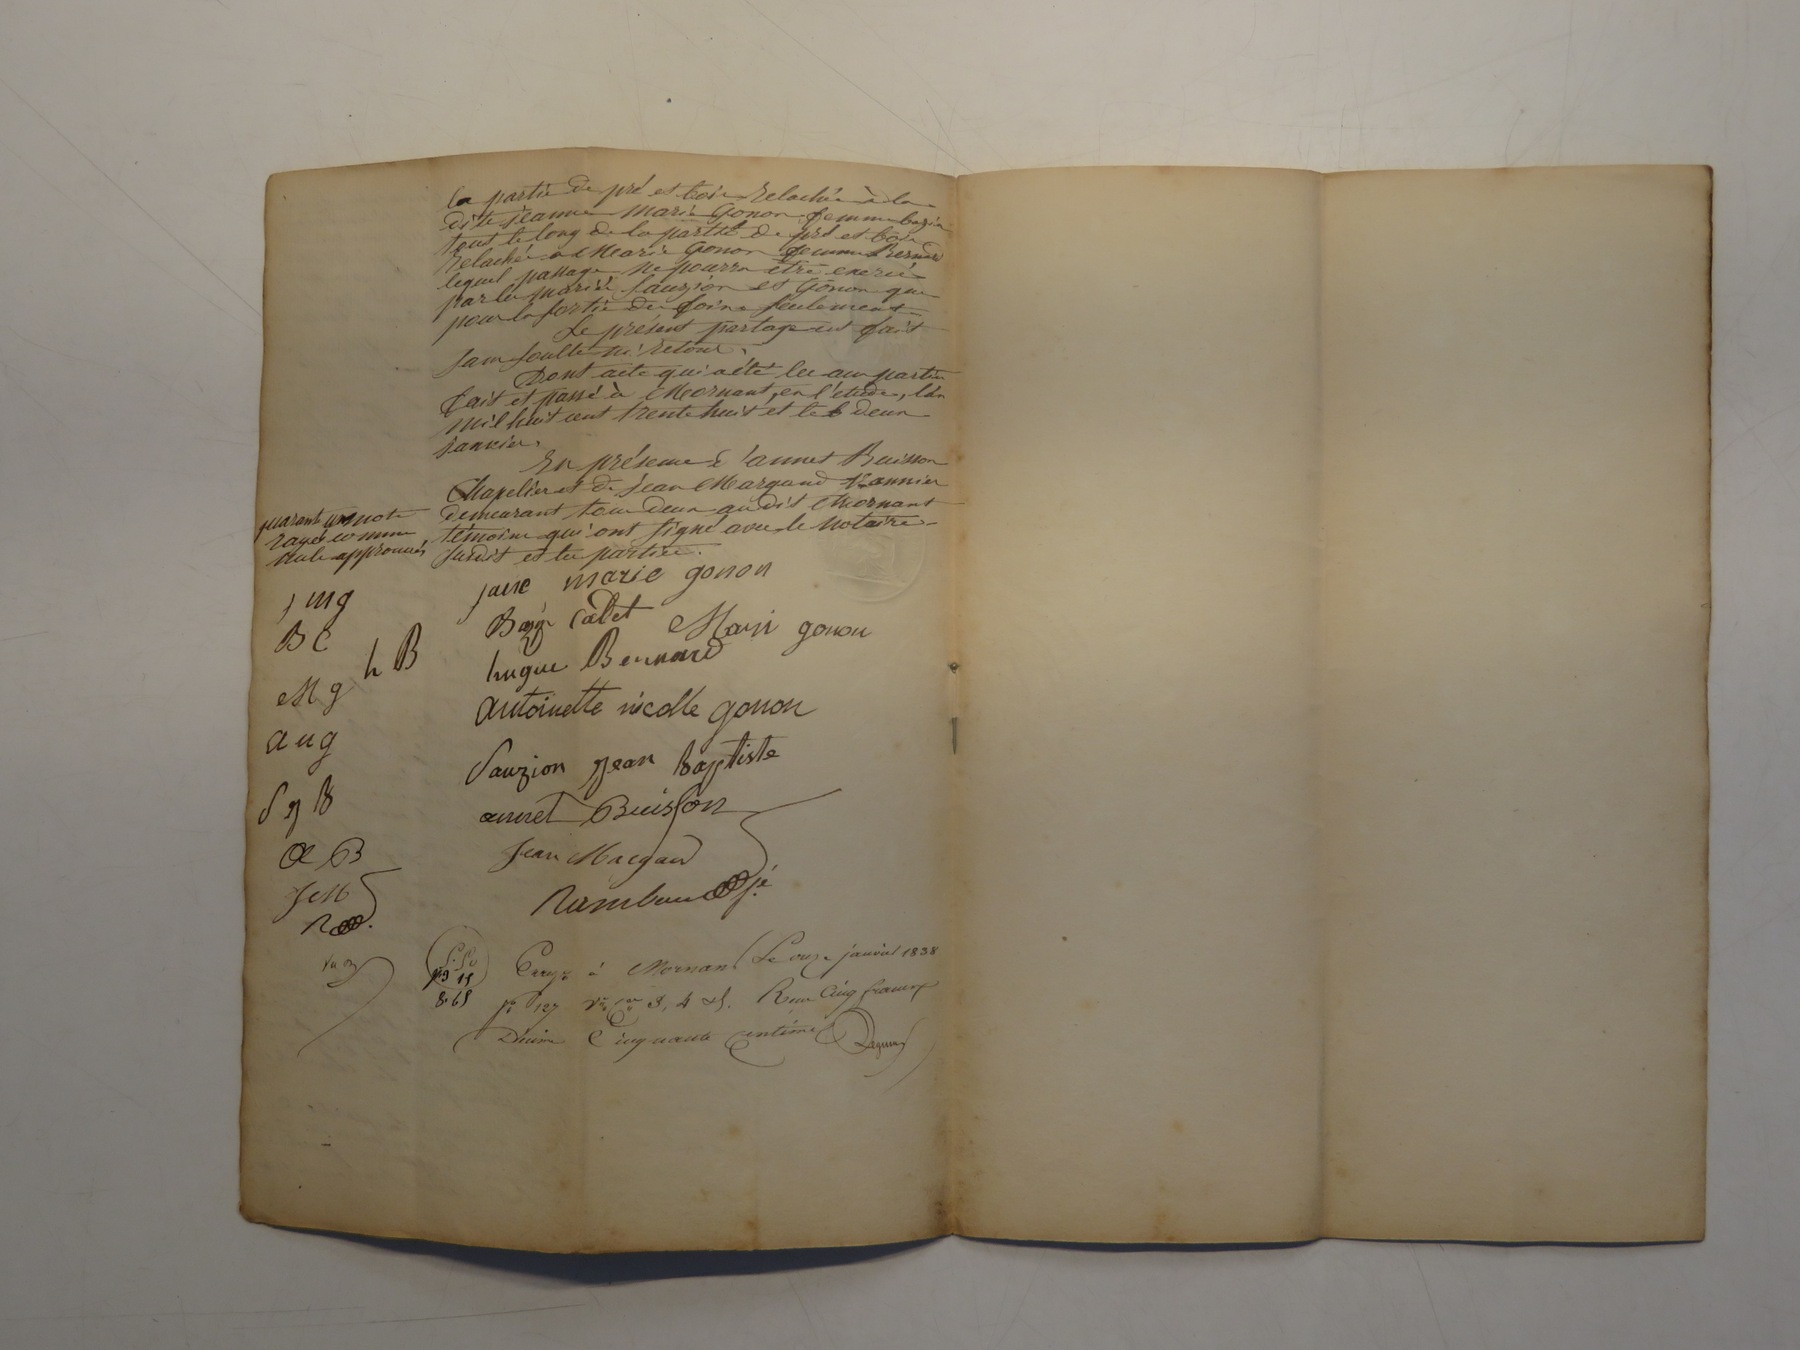 la partie de pré et bois relachée à la
dite jeanne Marie Gonon femme bazin
tout le long de la partie de pré et bois
relachée a Marie Gonon femme Bernard
lequel passage ne pourra être exercé
par les mariés Sauzion et Gonon que
pour la sortie des foins seulement.
Le présent partage est fait
sans soulte ni retour.
Dont acte qui a été lu aux parties
fait et passé à Mornant, en l'étude, l'an
mil huit cent trente huit et le deux
janvier.
En présence d'annet Buisson
Chapelier et de jean Margaud Vannier
demeurant tous deux au dit Mornant
témoins qui ont signé avec le notaire
susdit et les parties.
quarante un mots
rayés comme
nuls approuvés
j m g
B C
h B
M g
a n g
S J B
a B
J M
R
jane marie gonon
Bazin Cadet
Marie gonon
hugue Bernard
Antoinette nicolle gonon
Sauzion Jean baptiste
annet Buisson
Jean Margaud
Rambaud
à Mornant Le onze janvier 1838
fo 127 vo Ces 3, 4 & 5. Reçu Cinq francs
Décime Cinquante Centimes